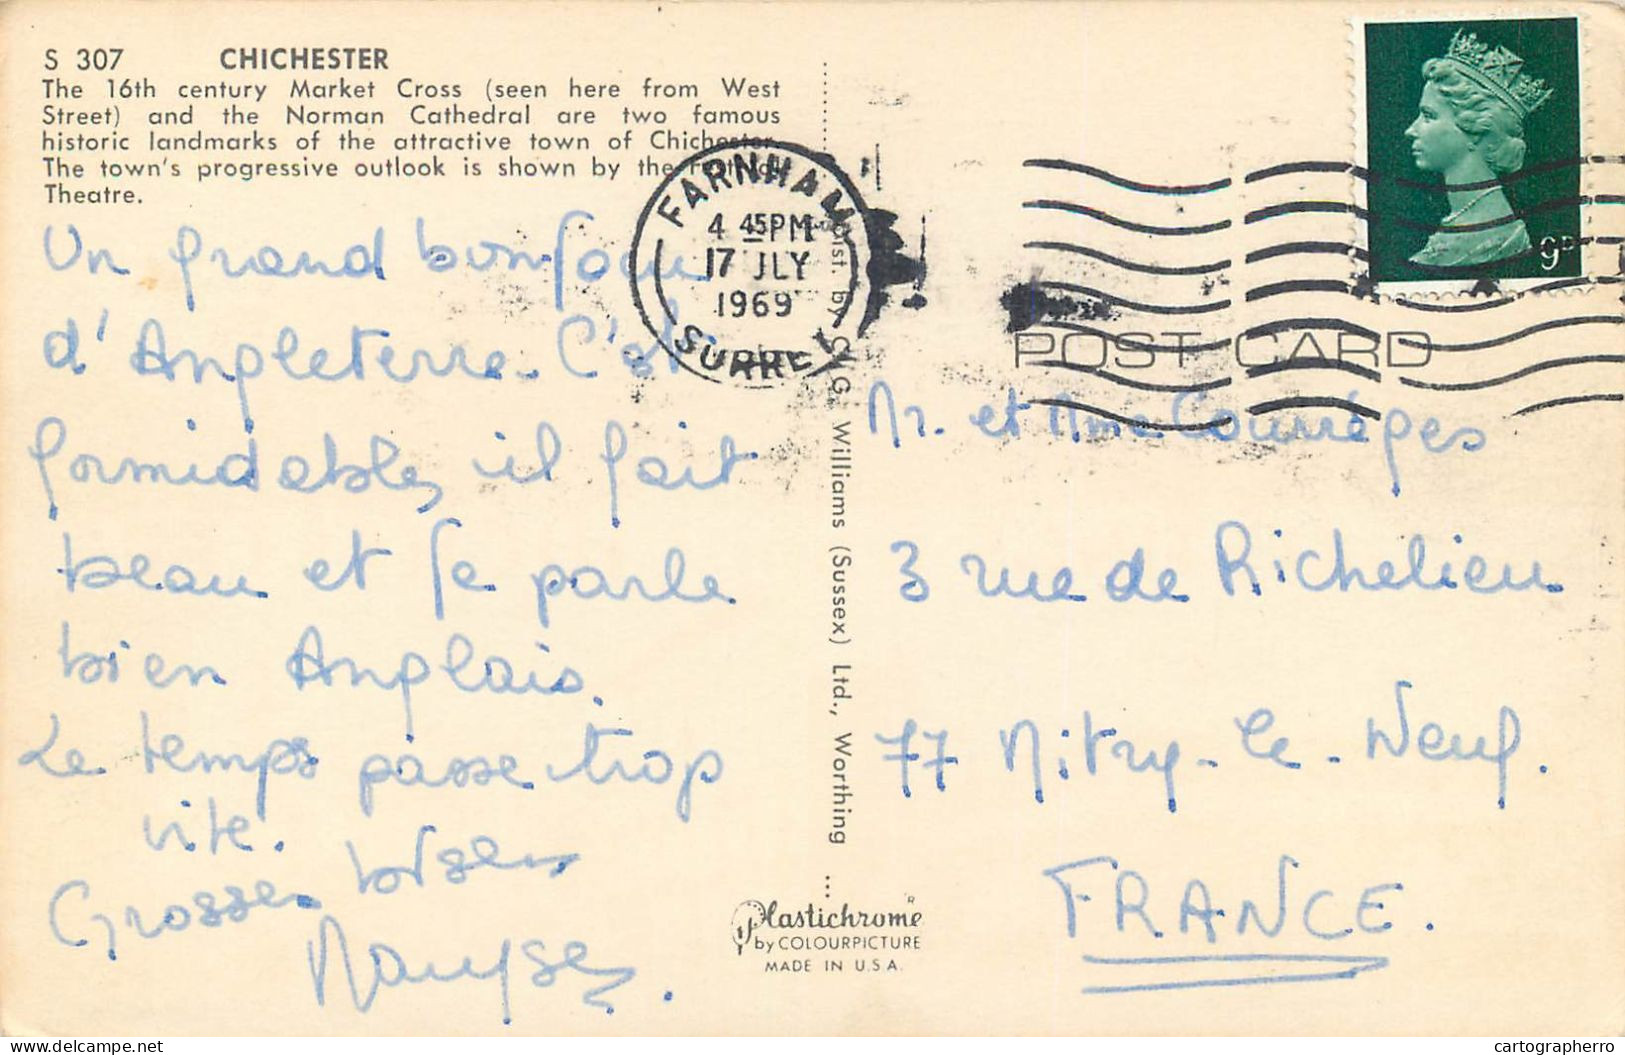 S 307 CHICHESTER
The 16th century Market Cross (seen here from West
Street) and the Norman Cathedral are two famous
historic landmarks of the attractive town of Chichester.
The town's progressive outlook is shown by the Festival
Theatre.
Un grand bonjour
d'Angleterre. C'est
formidable, il fait
beau et je parle
bien Anglais.
Le temps passe trop
vite.
Grosses bises
FARNHAM
4 45PM
17 JLY
1969
SURREY
Dist. by C.W.G. Williams (Sussex) Ltd., Worthing
Plastichrome R
by COLOURPICTURE
MADE IN U.S.A.
9P
POST CARD
Mr. et Mme Courréges
3 rue de Richelieu
77 Mitry-le-Neuf.
FRANCE.
www.delcampe.net
cartographerro